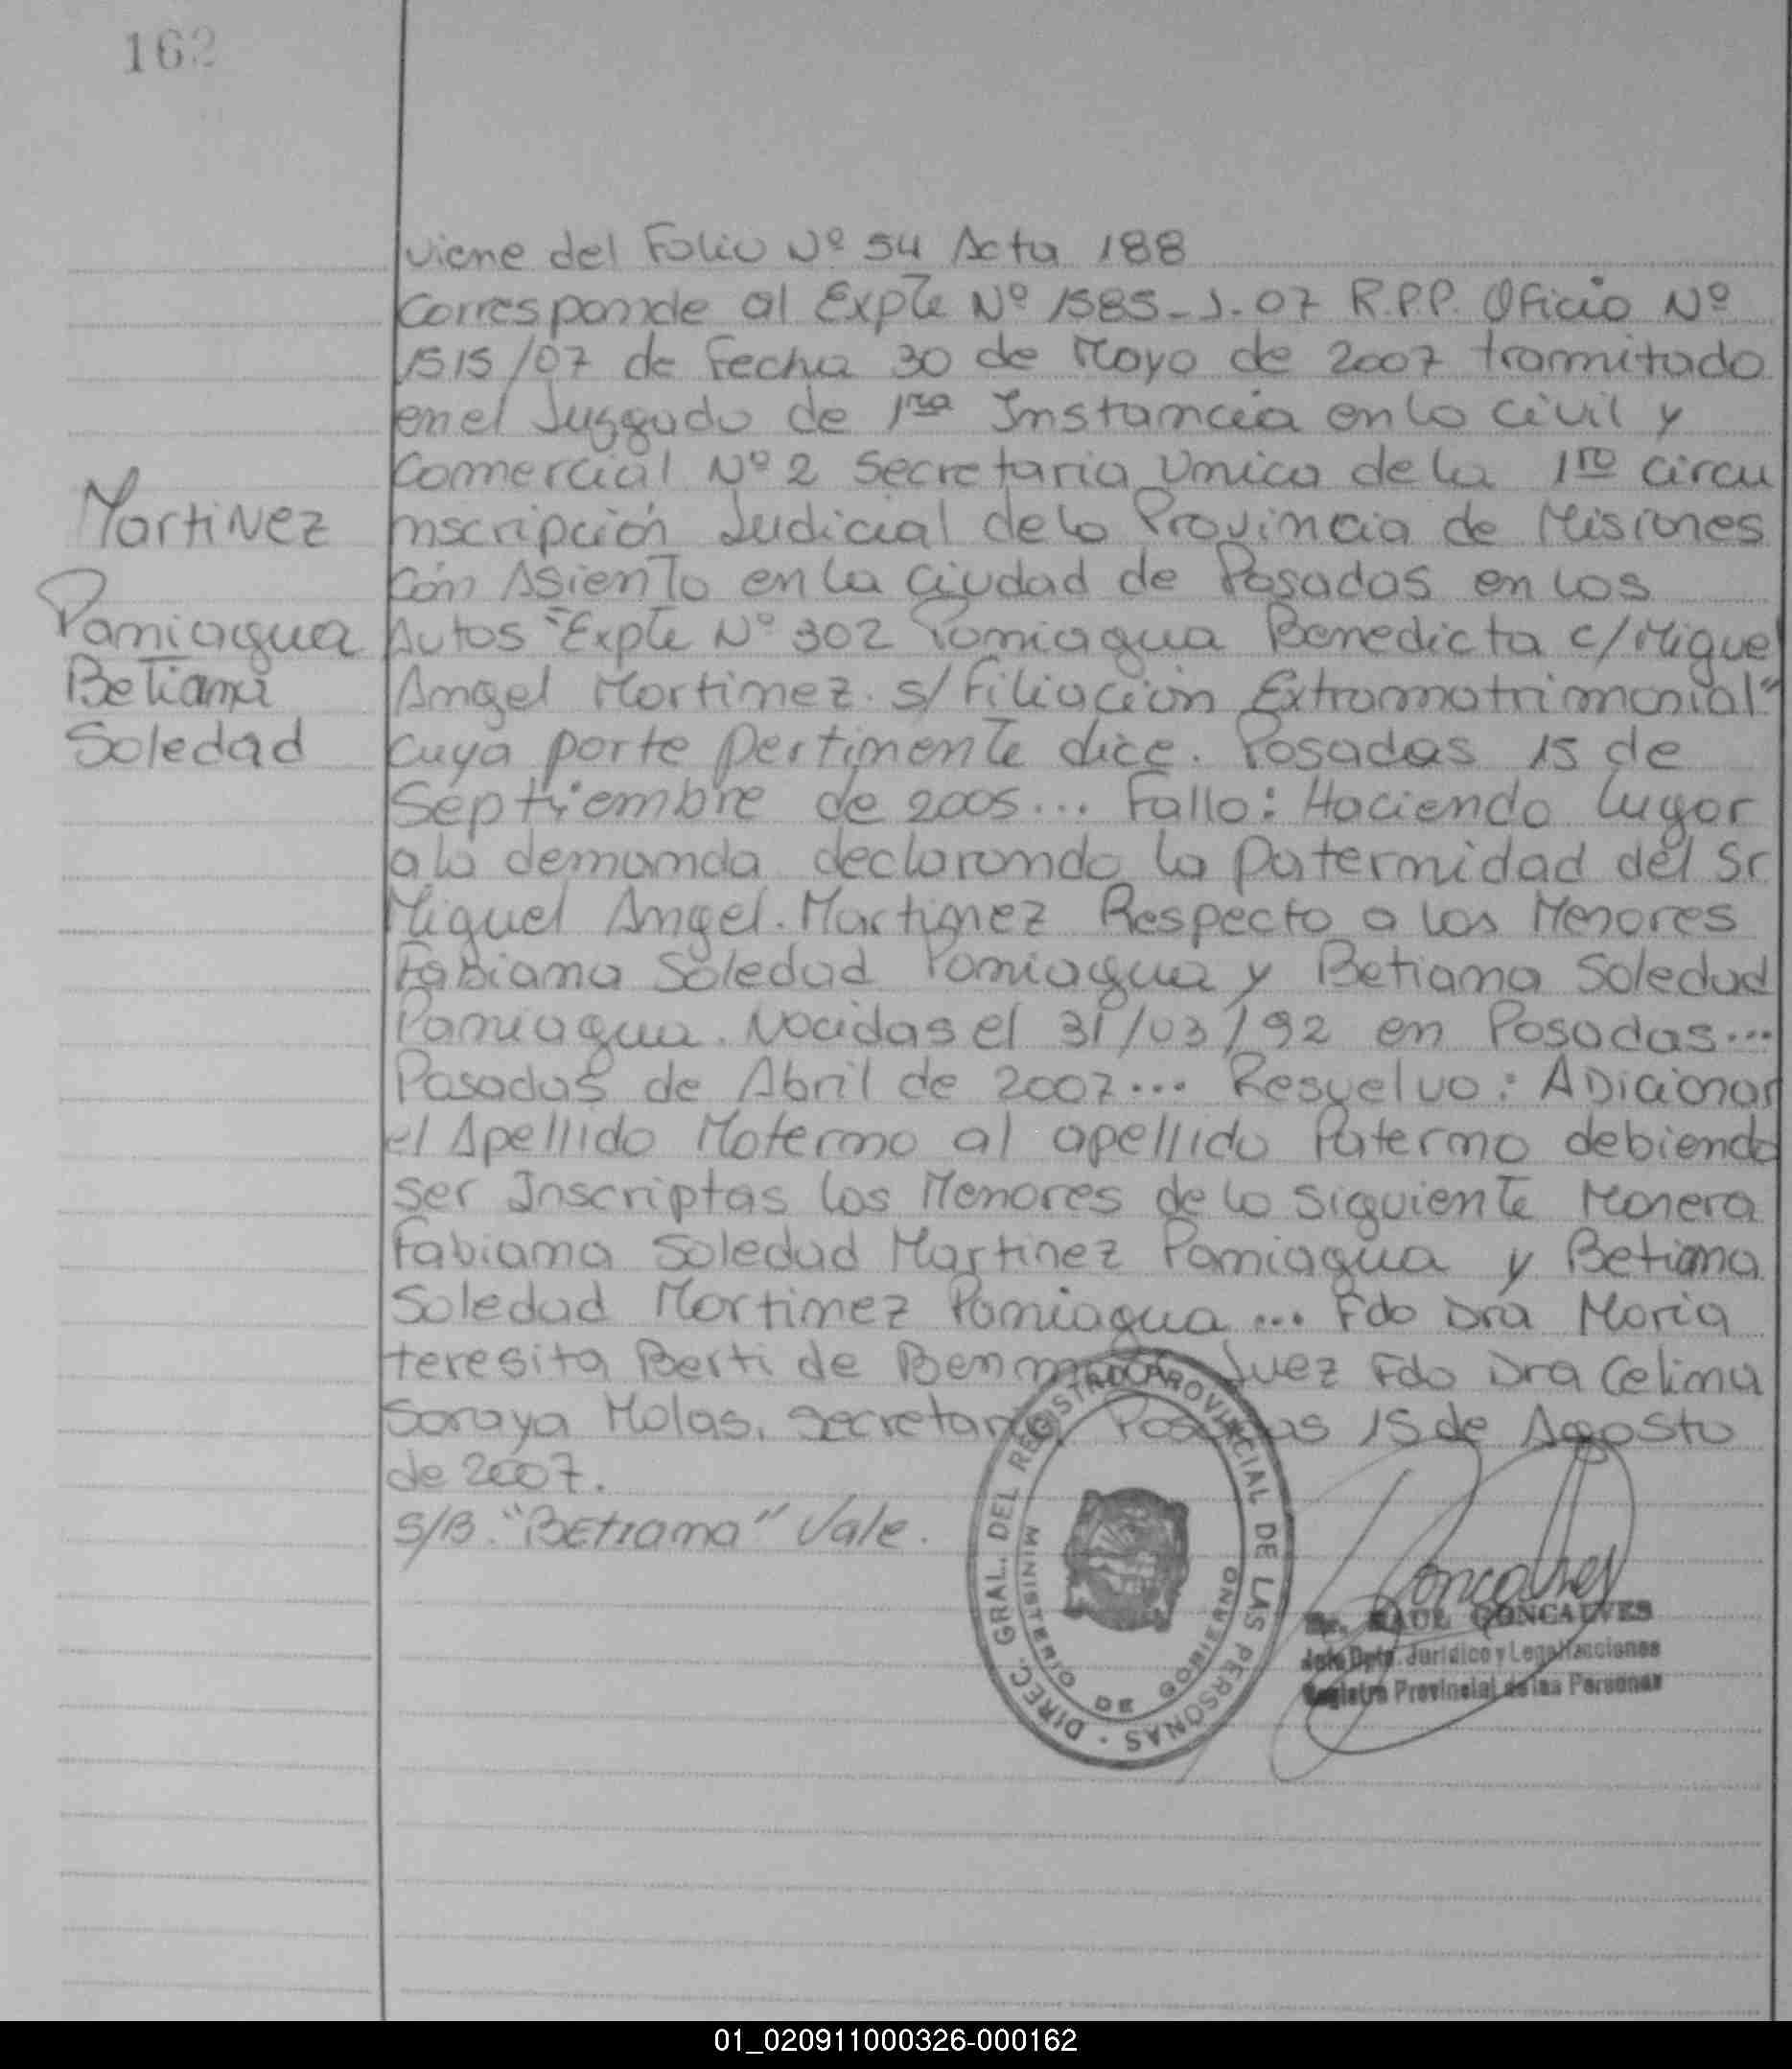 162
viene del Folio Nº 54 Acta 188
Corresponde al Expte Nº 1585-J-07 R.P.P. Oficio Nº
1515/07 de Fecha 30 de Mayo de 2007 tramitado
en el Juzgado de 1ra Instancia en lo civil y
Comercial Nº 2 Secretaria Unica de la 1ra circu
nscripción Judicial de la Provincia de Misiones
con Asiento en la ciudad de Posadas en los
Autos "Expte Nº 302 Paniagua Benedicta c/Miguel
Angel Martinez. s/Filiación Extramatrimonial"
cuya parte pertinente dice. Posadas 15 de
Septiembre de 2005... Fallo: Haciendo lugar
a la demanda declarando la Paternidad del Sr
Miguel Angel. Martinez Respecto a las Menores
Fabiana Soledad Paniagua y Betiana Soledad
Paniagua. Nacidas el 31/03/92 en Posadas...
Posadas de Abril de 2007... Resuelvo: ADicionar
el Apellido Materno al apellido Paterno debiendo
ser Inscriptas las Menores de la siguiente Manera
Fabiana Soledad Martinez Paniagua y Betiana
Soledad Martinez Paniagua... Fdo Dra Maria
teresita Berti de Juez Fdo Dra Celina
Soraya Molas. secretaria Posadas 15 de Agosto
de 2007.
S/B. "BEtiana" Vale.
Martinez
Paniagua
Betiana
Soledad
DIREC. GRAL. DEL REGISTRO PROVINCIAL DE LAS PERSONAS
MINISTERIO DE GOBIERNO
Goncalves
Dr. RAUL GONCALVES
Jefe Dpto. Jurídico y Legalizaciones
Registro Provincial de las Personas
01_020911000326-000162